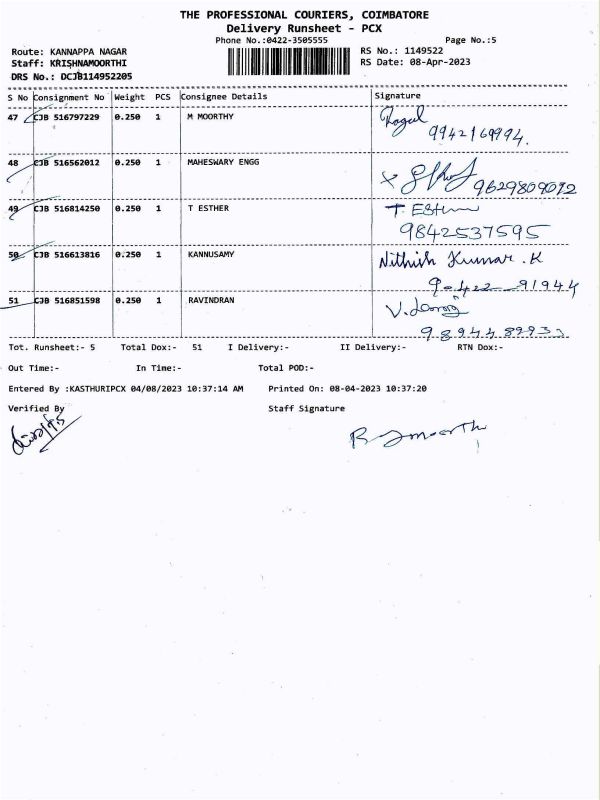 THE PROFESSIONAL COURIERS, COIMBATORE
Delivery Runsheet - PCX
Phone No.:0422-3505555 Page No.:5
Route: KANNAPPA NAGAR RS No.: 1149522
Staff: KRISHNAMOORTHI RS Date: 08-Apr-2023
DRS No.: DCJB114952205
S No Consignment No Weight PCS Consignee Details Signature
47 CJB 516797229 0.250 1 M MOORTHY Ragul
9942169994.
48 CJB 516562012 0.250 1 MAHESWARY ENGG
9629809092
49 CJB 516814250 0.250 1 T ESTHER T. Esther
9842537595
50 CJB 516613816 0.250 1 KANNUSAMY Nithish Kumar .K
91944
51 CJB 516851598 0.250 1 RAVINDRAN
Tot. Runsheet:- 5 Total Dox:- 51 I Delivery:- II Delivery:- RTN Dox:-
Out Time:- In Time:- Total POD:-
Entered By :KASTHURIPCX 04/08/2023 10:37:14 AM Printed On: 08-04-2023 10:37:20
Verified By Staff Signature